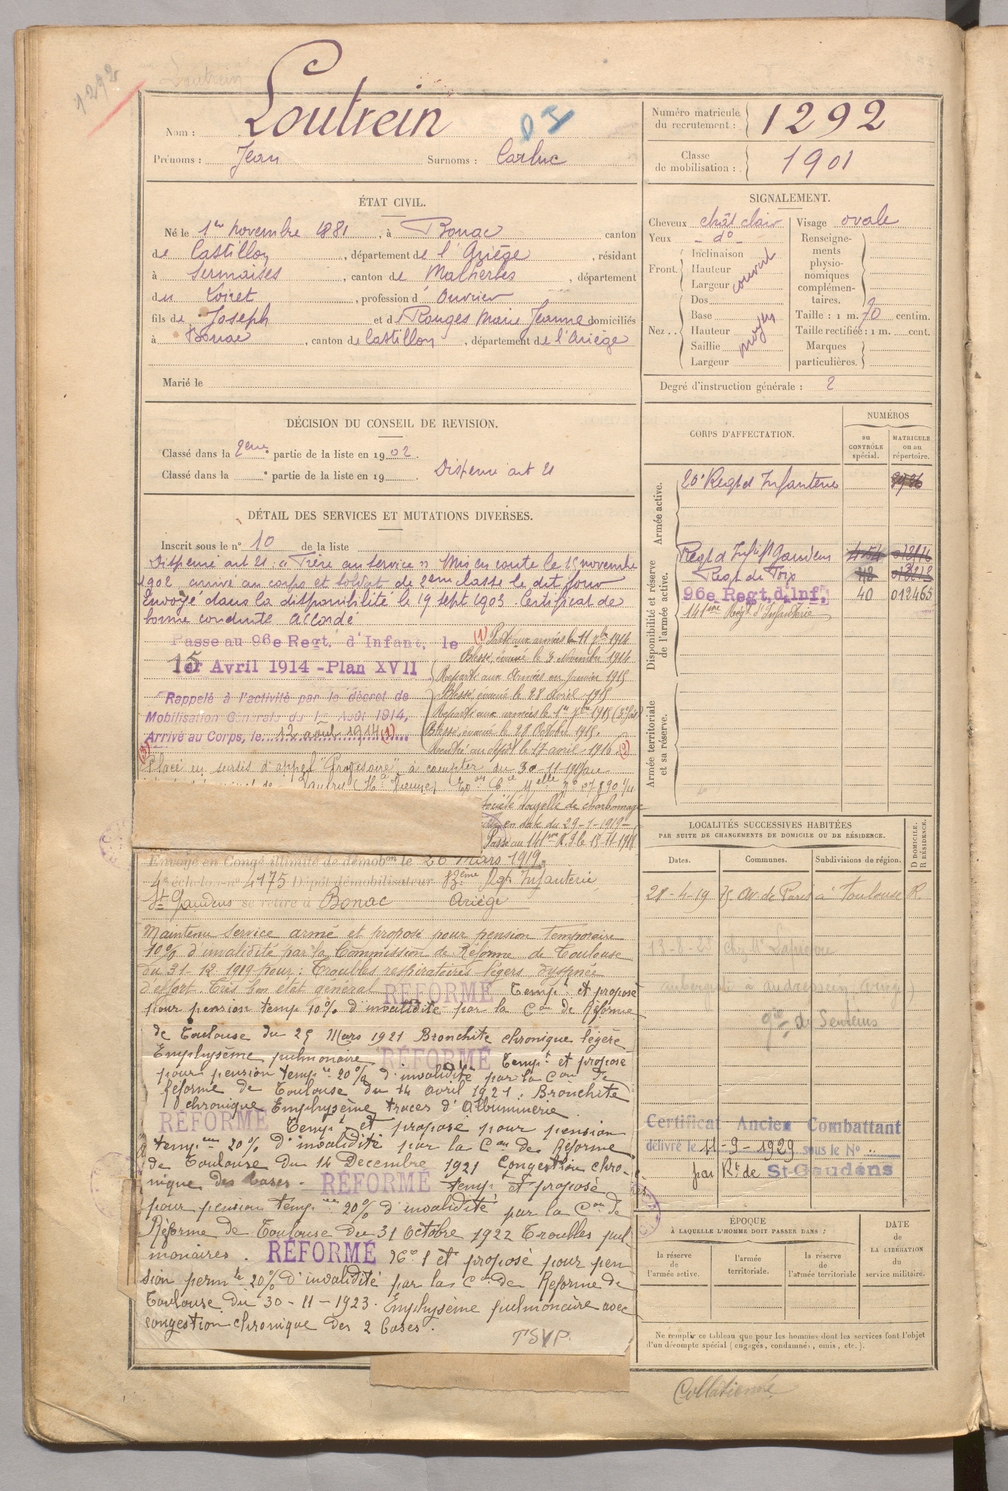 1292
Loutrein
Nom :
Prénoms : Jean Surnoms : Carluc
ÉTAT CIVIL.
Né le 1er novembre 1881, à Bonac canton
de Castillon, département de l'Ariège, résidant
à Sermaises, canton de Malherbes, département
du Loiret, profession d' Ouvrier
fils de Joseph et de Rouges Marie Jeanne domiciliés
à Bonac, canton de Castillon, département de l'Ariège
Marié le
DÉCISION DU CONSEIL DE REVISION.
Classé dans la 2ème partie de la liste en 1902.
Classé dans la partie de la liste en 19 . Dispensé art 21
DÉTAIL DES SERVICES ET MUTATIONS DIVERSES.
Inscrit sous le n° 10 de la liste
Dispensé art 21. « Frère au service ». Mis en route le 15 novembre
1902, arrivé au corps et soldat de 2ème classe le dit jour
Envoyé dans la disponibilité le 19 sept 1903. Certificat de
bonne conduite accordé
Passé au 96e Regt. d'Infant. le
1er Avril 1914 - Plan XVII
Rappelé à l'activité par le décret de
Mobilisation Générale du 1er Août 1914,
Arrivé au Corps, le 12 août 1914 (1)
(1) Parti aux armées le 11 1914
Blessé, évacué le 3 Novembre 1914
Reparti aux armées en janvier 1915
Blessé, évacué le 28 Avril 1915
Reparti aux armées le 1er 1915
Blessé, évacué le 28 Octobre 1915.
Rentré au dépôt le 17 avril 1916 (2)
Placé en sursis d'appel à compter du 30-11-
Société de charbonnage
en date du 29-1-1919
Passé au 141ème R.I. le 15-11-
Envoyé en Congé illimité de démobon le 26 Mars 1919,
4e échelon n° 4175 Dépôt démobilisateur 83ème Rgt Infanterie
St Gaudens se retire à Bonac Ariège
Maintenu Service armé et proposé pour pension temporaire
10% d'invalidité par la Commission de Réforme de Toulouse
du 31-12 1919 pour : Troubles respiratoires légers dyspnée
d'effort. Très bon état général RÉFORMÉ Tempt et proposé
pour pension temp 10% d'invalidité par la Con de Réforme
de Toulouse du 25 Mars 1921 Bronchite chronique légère
Emphysème pulmonaire RÉFORMÉ Tempt et proposé
pour pension tempre 20% d'invalidité par la Con de
Réforme de Toulouse du 14 avril 1921. Bronchite
chronique Emphysème traces d'Albuminerie.
RÉFORMÉ Tempt et proposé pour pension
tempre 20% d'invalidité par la Con de Réforme
de Toulouse du 14 Décembre 1921 Congestion chro-
nique des bases. RÉFORMÉ tempt et proposé
pour pension tempre 20% d'invalidité par la Con de
Réforme de Toulouse du 31 Octobre 1922 Troubles pul
monaires. RÉFORMÉ N° 1 et proposé pour pen
sion permte 20% d'invalidité par la Con de Réforme de
Toulouse du 30-11-1923. Emphysème pulmonaire avec
congestion chronique des 2 bases.
TSVP.
Numéro matricule du recrutement : 1292
Classe de mobilisation : 1901
SIGNALEMENT.
Cheveux chât clair
Yeux d°
Front. Inclinaison
Hauteur
Largeur
couvert
Nez. Dos
Base
Hauteur
Saillie
Largeur
moyen
Visage ovale
Renseigne-
ments
physio-
nomiques
complémen-
taires.
Taille : 1 m. 70 centim.
Taille rectifiée : 1 m. cent.
Marques
particulières.
Degré d'instruction générale : 2
CORPS D'AFFECTATION.
NUMÉROS
au
CONTRÔLE
spécial.
MATRICULE
ou au
répertoire.
Armée active.
Regt d'Infanterie
Disponibilité et réserve
de l'armée active.
Regt d'Inf St Gaudens
Regt de Foix
96e Regt. d'Inf. 40 012465
141ème Régt d'Infanterie
Armée territoriale
et sa réserve.
LOCALITÉS SUCCESSIVES HABITÉES
PAR SUITE DE CHANGEMENTS DE DOMICILE OU DE RÉSIDENCE.
Dates. Communes. Subdivisions de région. D DOMICILE. R RÉSIDENCE.
28-4-19 Av. de Paris à Toulouse R.
chez Mr
aubergiste à Audressein
gie de Sentein
Certificat Ancien Combattant
délivré le 11-9-1929 sous le No
par Rt de St-Gaudens
ÉPOQUE
À LAQUELLE L'HOMME DOIT PASSER DANS :
DATE
DE
LA LIBÉRATION
du
service militaire.
la réserve
de
l'armée active.
l'armée
territoriale.
la réserve
de
l'armée territoriale
Ne remplir ce tableau que pour les hommes dont les services font l'objet
d'un décompte spécial (engagés, condamnés, omis, etc.).
Collationné